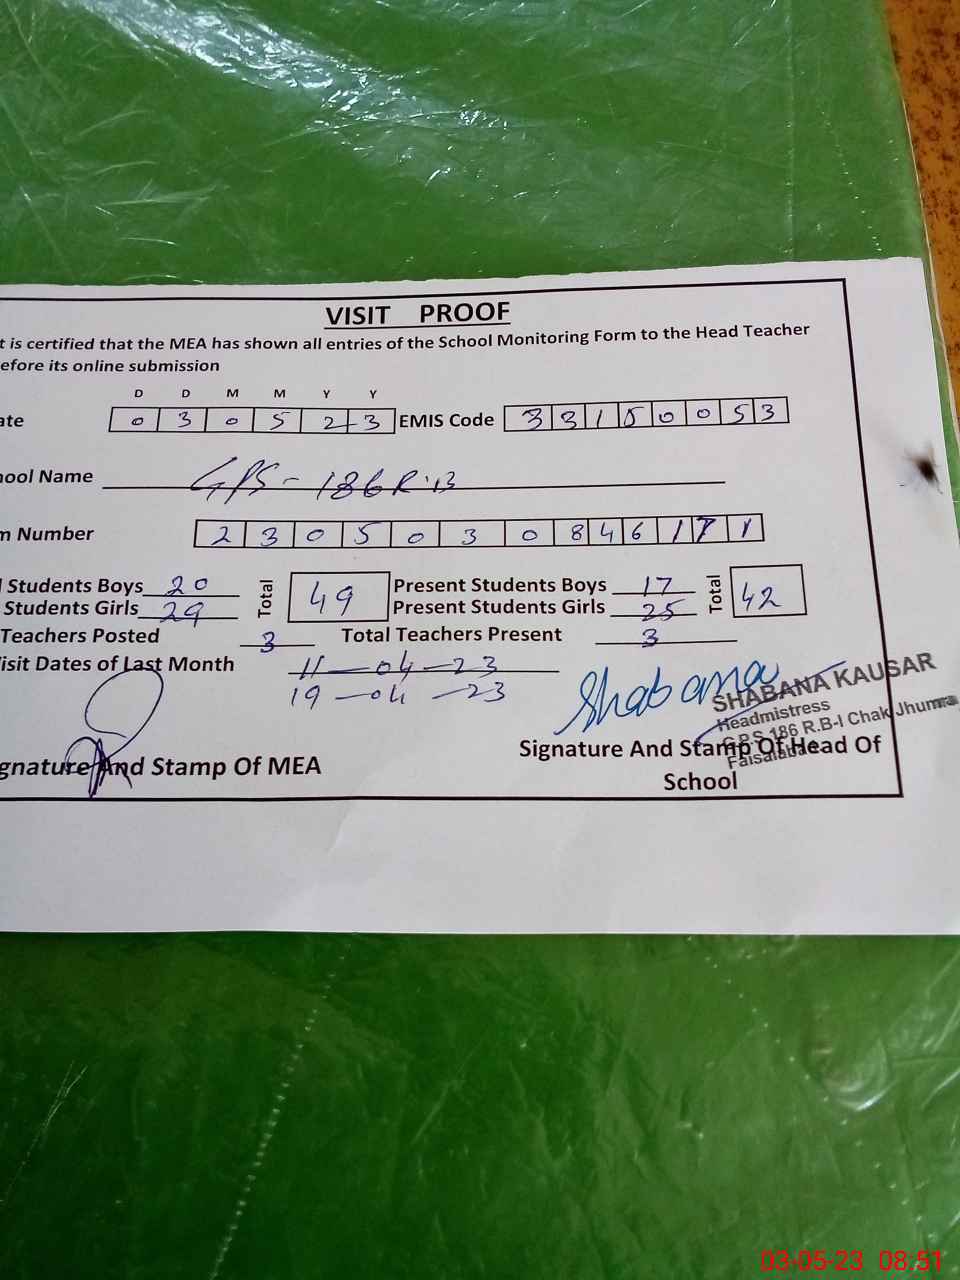 VISIT PROOF
t is certified that the MEA has shown all entries of the School Monitoring Form to the Head Teacher
efore its online submission
D D M M Y Y
ate 0 3 0 5 2 3 EMIS Code 3 3 1 5 0 0 5 3
hool Name GPS - 186 R.B
m Number 2 3 0 5 0 3 0 8 4 6 1 7 1
l Students Boys 20 Total 49 Present Students Boys 17 Total 42
Students Girls 29 Present Students Girls 25
Teachers Posted 3 Total Teachers Present 3
isit Dates of Last Month 11-04-23
19-04-23
Shabana
SHABANA KAUSAR
Headmistress
G.P.S 186 R.B-I Chak Jhumra
Faisalabad
gnature And Stamp Of MEA
Signature And Stamp Of Head Of
School
03-05-23 08:51